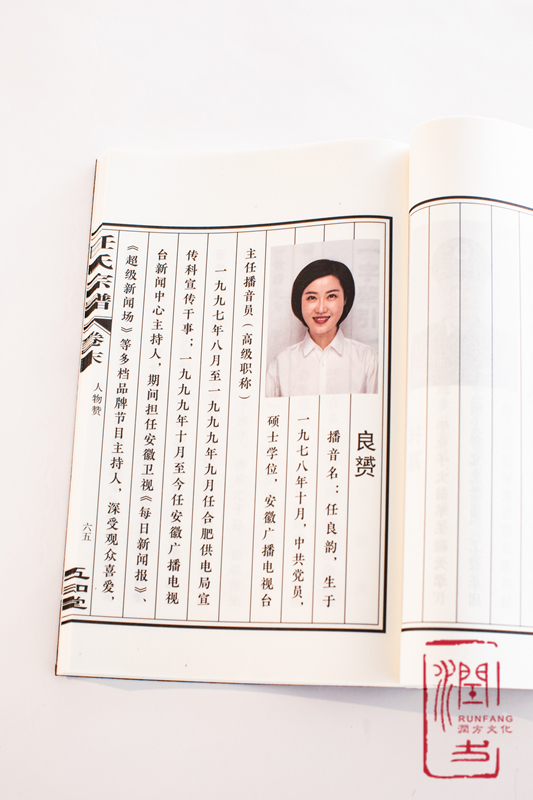 良赟
播音名：任良韵，生于
一九七八年十月，中共党员，
硕士学位，安徽广播电视台
主任播音员（高级职称）
一九九七年八月至一九九九年九月任合肥供电局宣
传科宣传干事；一九九九年十月至今任安徽广播电视
台新闻中心主持人，期间担任安徽卫视《每日新闻报》、
《超级新闻场》等多档品牌节目主持人，深受观众喜爱，
任氏宗谱
卷末
人物赞
六五
五知堂
潤方
RUNFANG
潤方文化